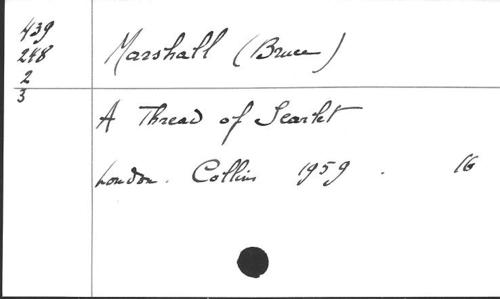 439
248
2
3
Marshall (Bruce)
A Thread of Scarlet
London. Collins 1959. 16